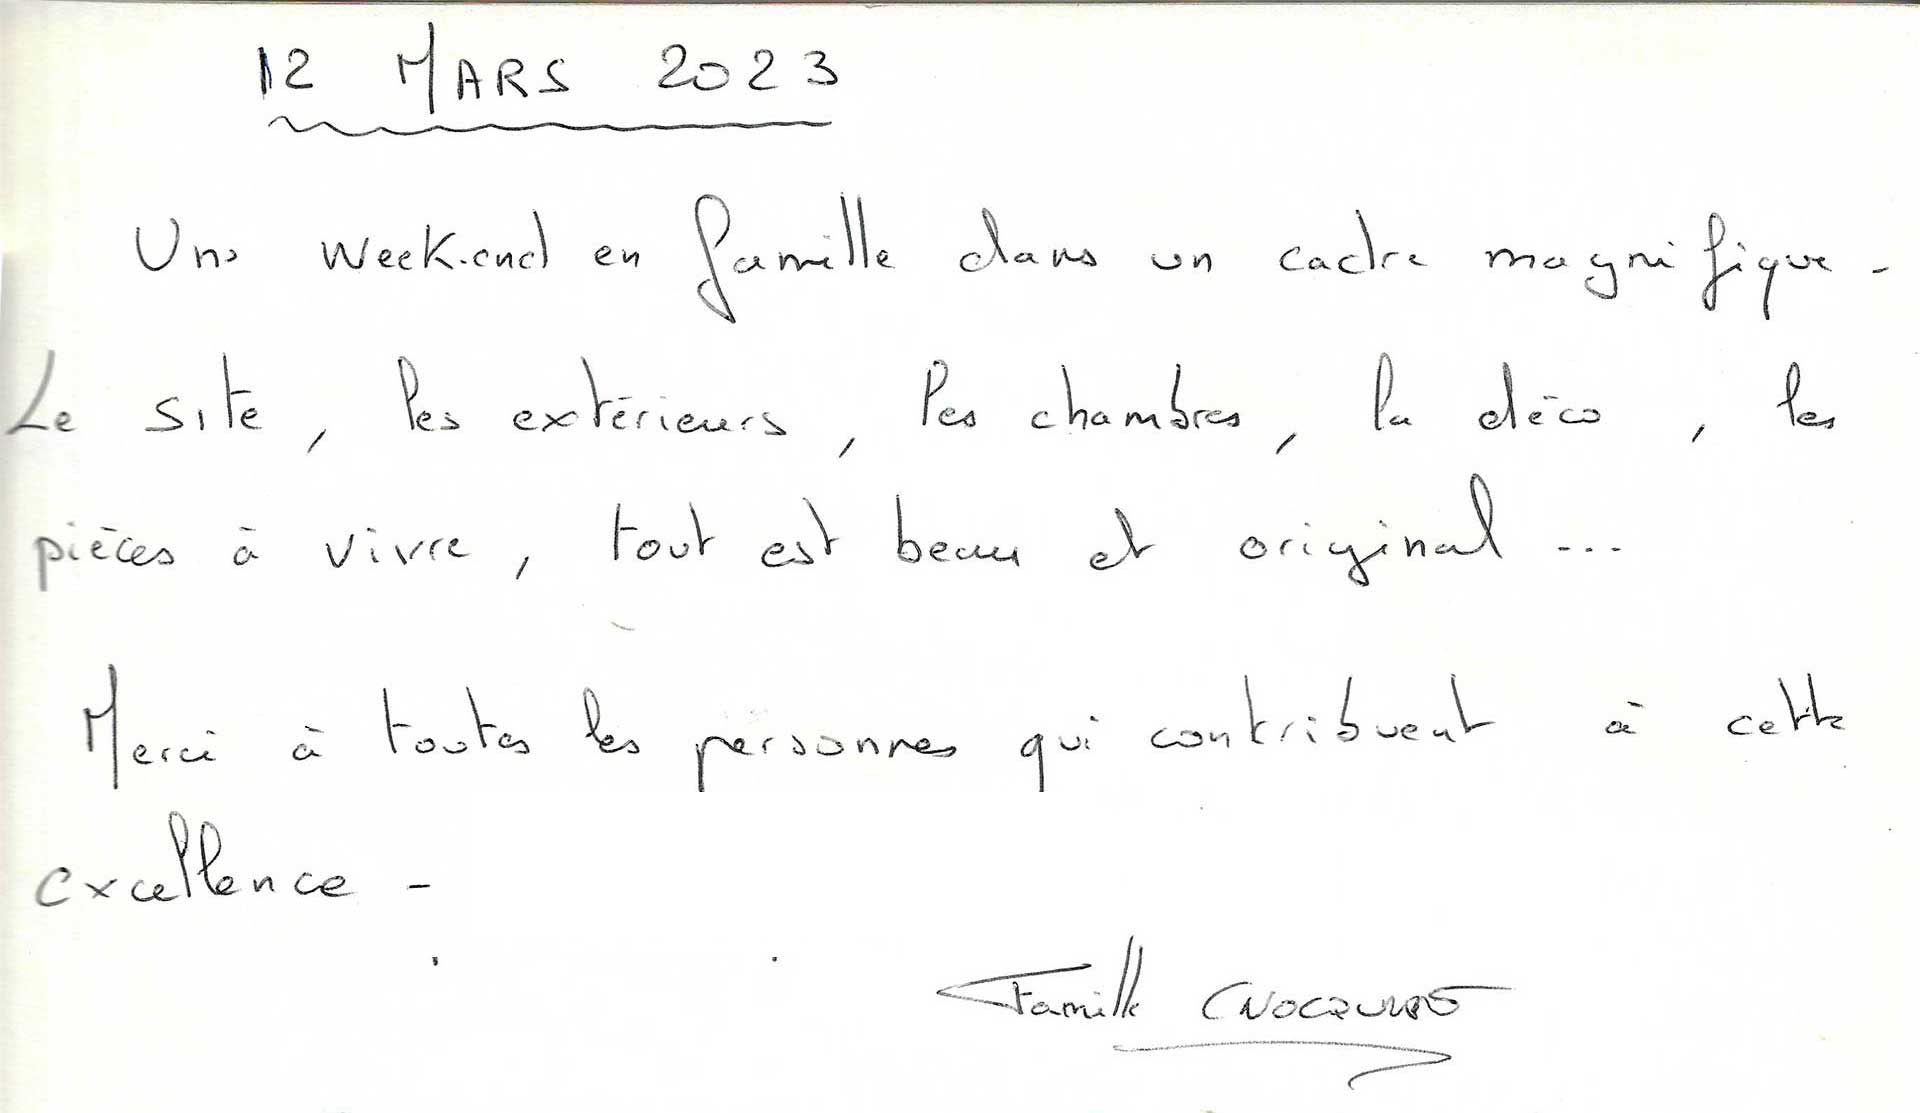 12 MARS 2023
Un week-end en famille dans un cadre magnifique -
Le site, les extérieurs, les chambres, la déco, les
pièces à vivre, tout est beau et original ...
Merci à toutes les personnes qui contribuent à cette
excellence -
Famille